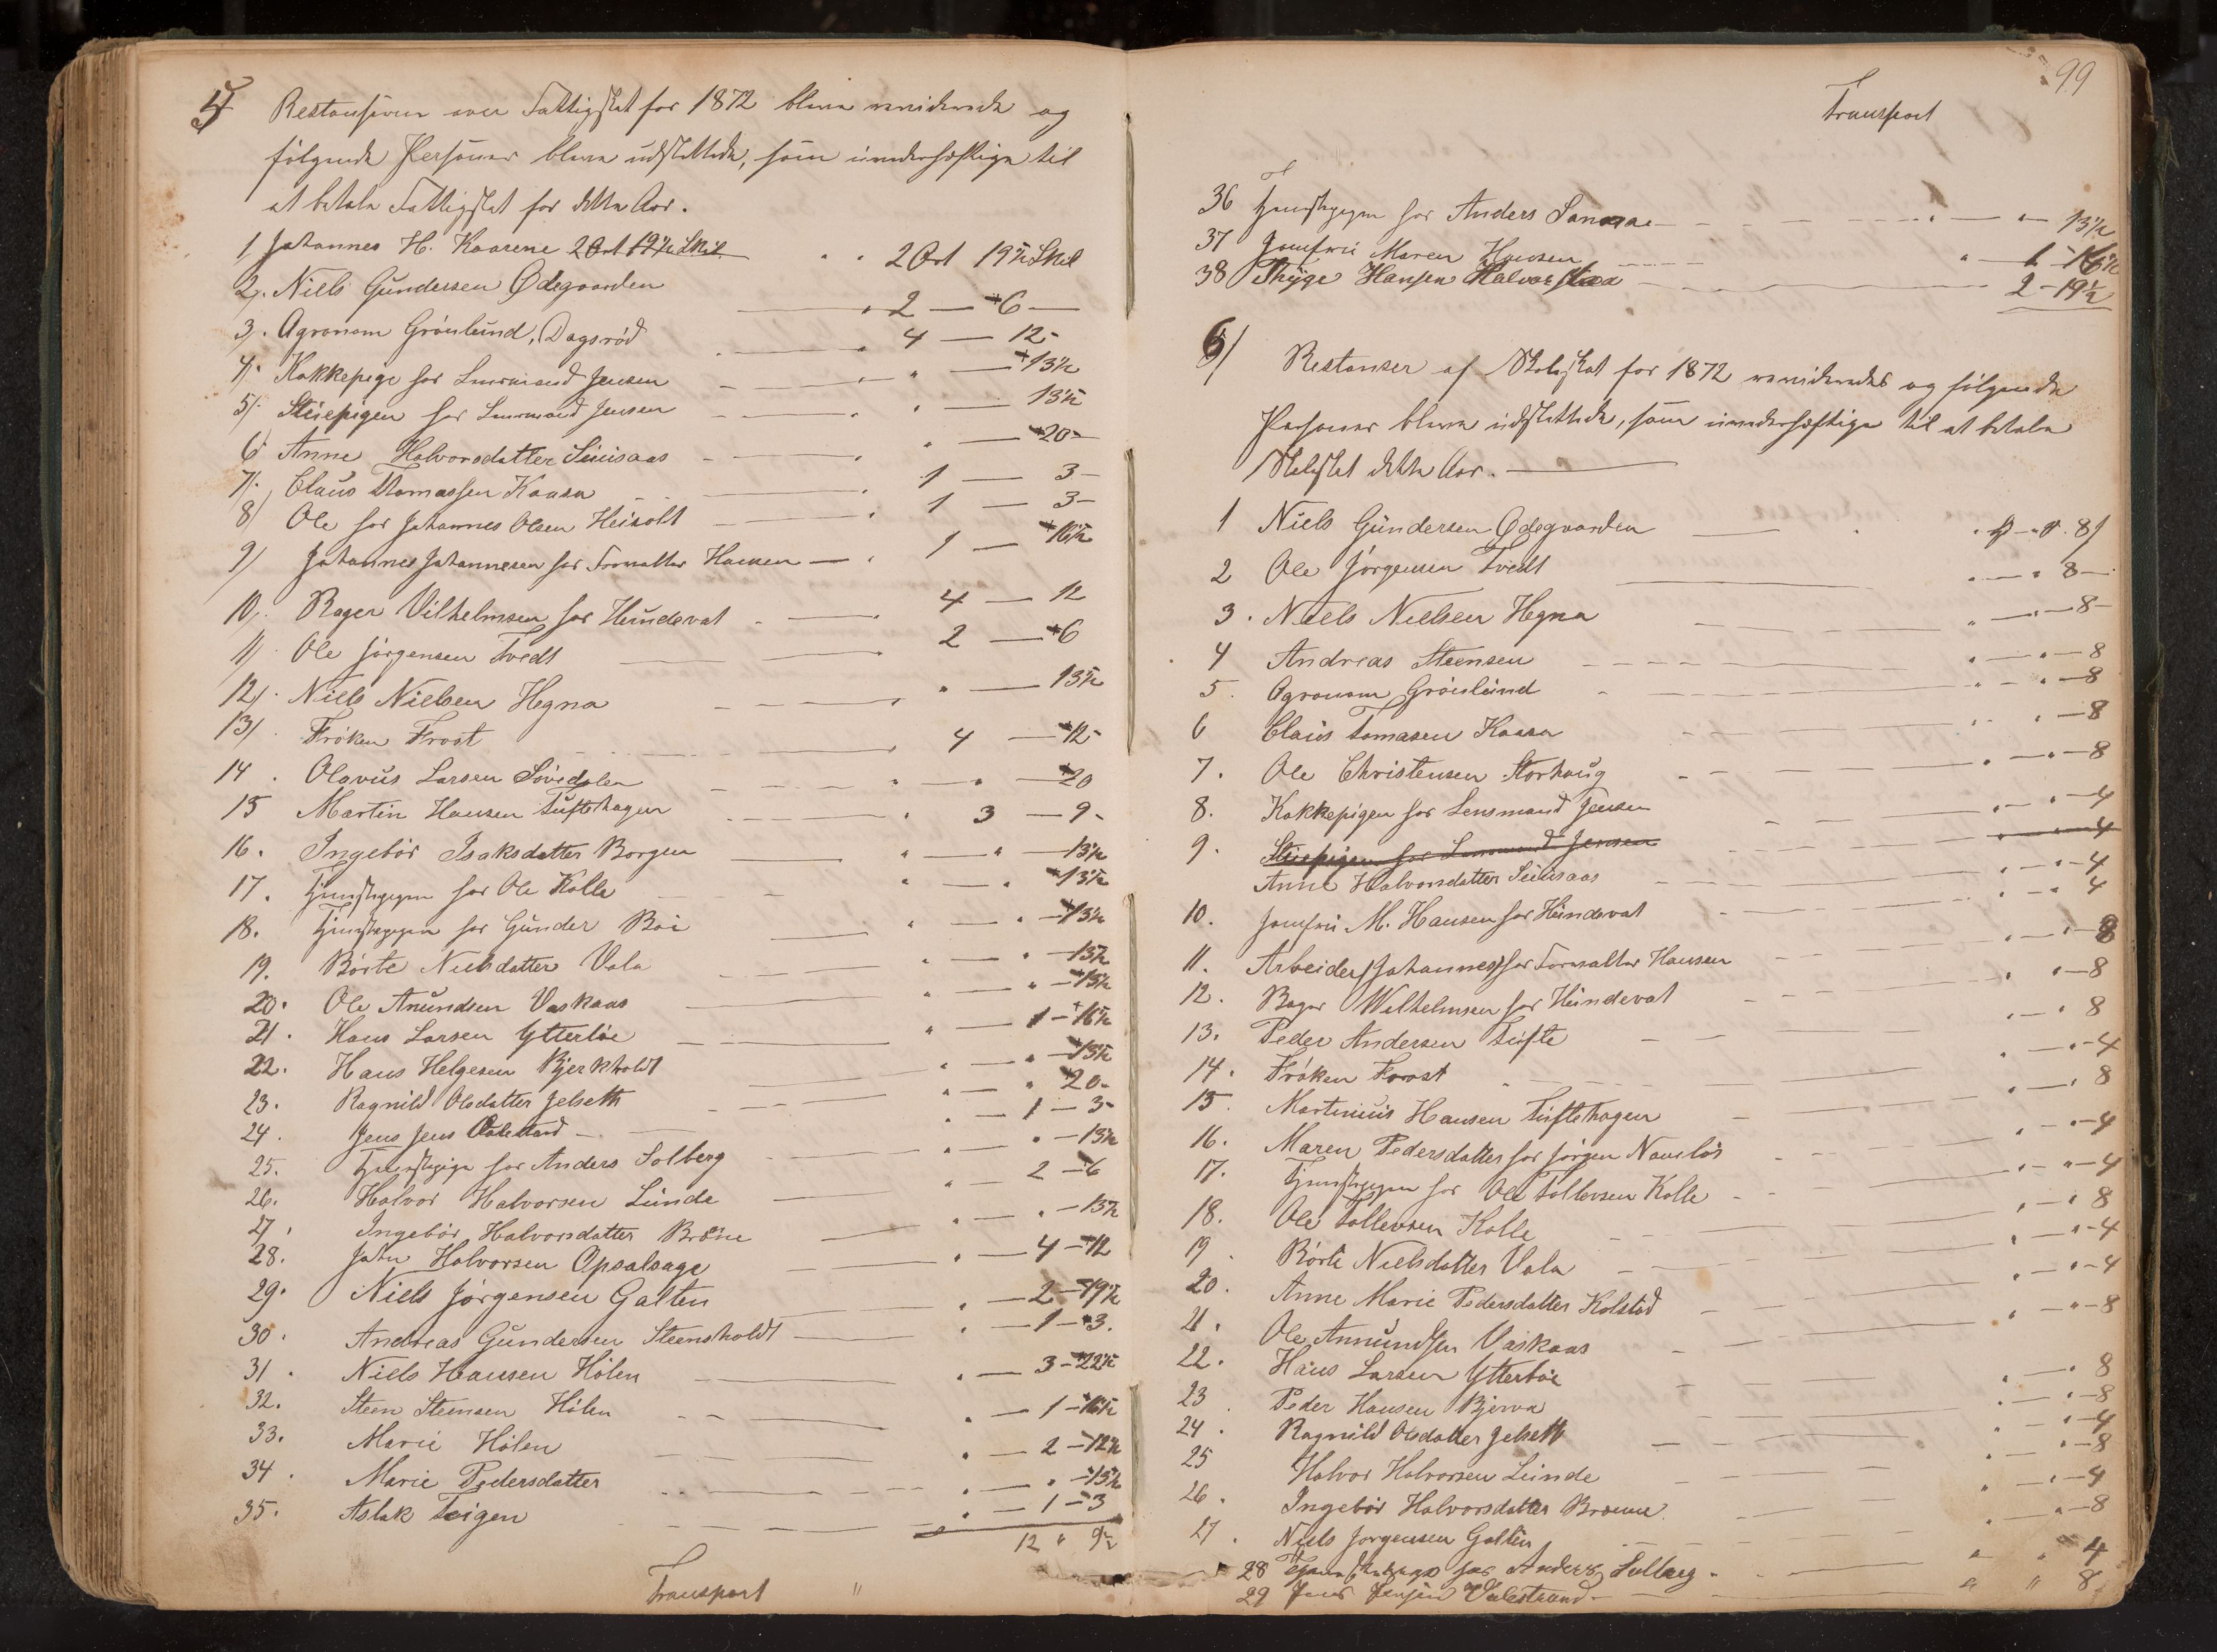 5/ Restansерne over Fattigskat for 1872 bleve reviderede og
følgende Personer bleve udslettede, som uvederhæftige til
at betale Fattigskat for dette Aar.
1/ Johannes H. Kaasene 2 Ort 19½ Skil . . 2 Ort 19½ Skil
2/. Niels Gundersen Ødegaarden . 2 — 6 —
3/. Agronom Grönlund, Dagsröd . 4 — 12 -
4/. Kokkepige hos Lensmand Jensen " — 13½
5/. Stuepigen hos Lensmand Jensen . " — 13½
6 Anne Halvorsdatter . " — 20 -
7/. Claus Thomassen Kaasa . 1 — 3 -
8/ Ole hos Johannes Olsen Heisholt . 1 — 3 -
9/ Johannes Johannesen hos Forvalter Hansen — . 1 — 16½
10/. Roger Vilhelmsen hos Hundevat . 4 — 12
11/. Ole Jörgensen Tvedt 2 — 6
12/. Niels Nielsen Hegna " — 13½
13/. Fröken Frost 4 — 12 -
14. Olavus Larsen " — 20
15 Martin Hansen Tuftehagen . 3 — 9 -
16. Ingebör Isaksdatter Borgen " — " — 13½
17. Tjenestepigen hos Ole Kolle " — " — 13½
18. Tjenestepigen hos Gunder Bøe " — " — 13½
19. Börte Nielsdatter Vala " — " — 13½
20. Ole Anundsen Vaskaas " — " — 13½
21. Hans Larsen Ytterböe " — 1 — 16½
22. Hans Helgesen Bjerkholdt " — " — 13½
23. Ragnild Olsdatter Jelseth " — " 20 -
24. Jens Jens " — 1 — 3 -
25. Tjenestepige hos Anders Solberg " — " — 13½
26. Halvor Halvorsen Lunde " — 2 — 6
27. Ingebör Halvorsdatter " — " — 13½
28. John Halvorsen Opsalsage " — 4 — 12
29. Niels Jörgensen Galten " — 2 — 19½
30. Andreas Gundersen Steensholdt " — 1 — 3.
31. Niels Hansen Hölen " — 3 — 22½
32. Steen Steensen Hölen " — 1 — 16½
33. Marie Hölen " — 2 — 12½
34. Marie Pedersdatter " — " — 13½
35. Aslak Teigen " — 1 — 3
12 " 9½
Transport "
99
Transport
36 Tjenestepigen hos Anders " — 13½
37 Jomfru Maren Hansen " — 1 — 16½
38 Thyge Hansen 2 — 19½
6/ Restanser af Skoleskat for 1872 revideredes og følgende
Personer bleve udslettede, som uvederhæftige til at betale
Skoleskat dette Aar. —
1 Niels Gundersen Ødegaarden 8/
2 Ole Jörgensen Tvedt " — " 8 —
3. Niels Nielsen Hegna " — " — 8 -
4 Andreas Steensen " — " — 8
5. Agronom Grönlund " — " — 8
6 Claus Tomasen Kaasa " — 8
7. Ole Christensen Storhaug " — " — 8
8. Kokkepigen hos Lensmand Jensen " — " — 4
9. Stuepigen hos Lensmand Jensen " — " — 4
Anne Halvorsdatter " — " — 4
10. Jomfru M. Hansen hos Hundevat " — " 4
11. Arbeider Johannes hos Forvalter Hansen " — " — 8
12. Roger Wilhelmsen hos Hundevat " " — 8
13. Peder Andersen Tufte " — " 8
14. Fröken Frost " — " — 4
15. Martinius Hansen Tuftehagen " — " 8
16. Maren Pedersdatter hos Jörgen " — " — 4
17. Tjenestepigen hos Ole Tollevsen Kolle " — " — 4
18. Ole Tollevsen Kolle " — " 8
19. Börte Nielsdatter Vala " " — 4
20. Anne Marie Pedersdatter Kolstad " — " — 4
21. Ole Annundsen Vaskaas " — " — 8
22. Hans Larsen Ytterböe " — " 8
23. Peder Hansen Bjerva " — " — 8
24. Ragnild Olsdatter Jelseth " — " — 4
25 Halvor Halvorsen Lunde " — " — 8
26. Ingebör Halvorsdatter " — " — 4
27. Niels Jörgensen Galten " — " — 8
28 hos Anders Solberg " " 4
29 Jens Jensen Valestrand " " 8